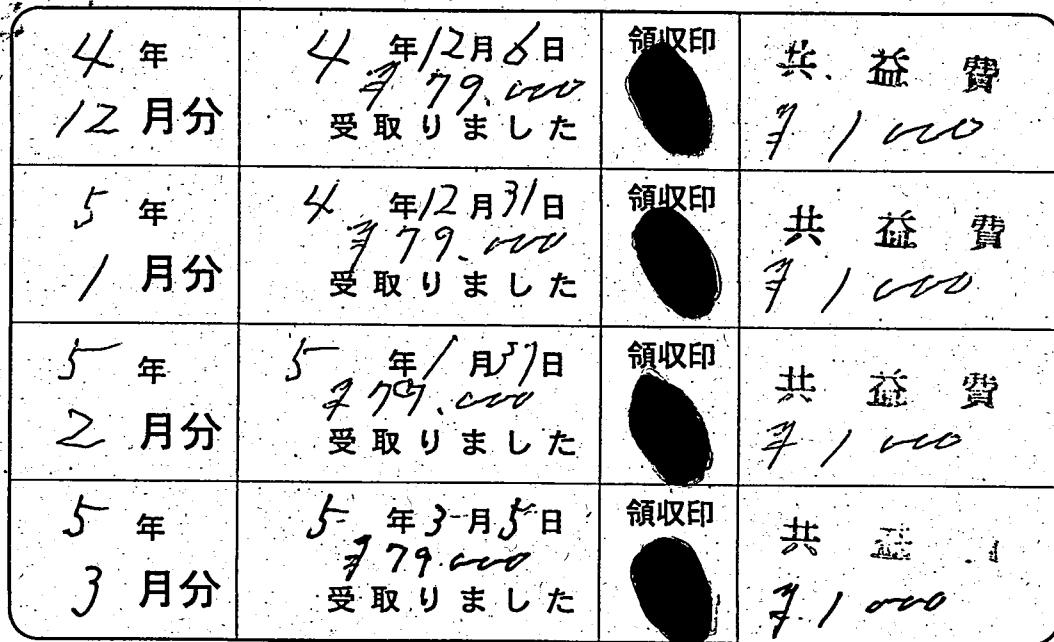 4 年
12 月分
4 年12月6日
¥79.000
受取りました
領収印
共益費
¥1000
5 年
1 月分
4 年12月31日
¥79.000
受取りました
領収印
共益費
¥1000
5 年
2 月分
5 年1月31日
¥79.000
受取りました
領収印
共益費
¥1000
5 年
3 月分
5 年3月5日
¥79.000
受取りました
領収印
共益
¥1000